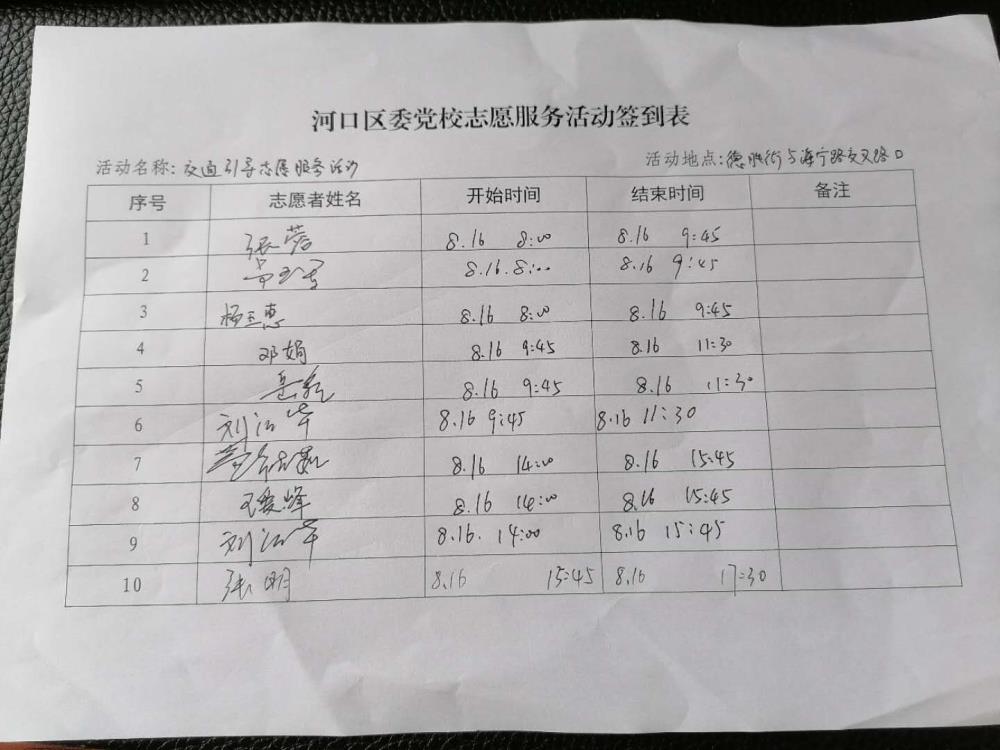 河口区委党校志愿服务活动签到表
活动名称:交通引导志愿服务活动 活动地点:德胜街与海宁路交叉路口
序号 志愿者姓名 开始时间 结束时间 备注
1 张蓉 8.16 8:00 8.16 9:45
2 8.16. 8:00 8.16 9:45
3 杨玉惠 8.16 8:00 8.16 9:45
4 邓娟 8.16 9:45 8.16 11:30
5 8.16 9:45 8.16 11:30
6 刘江华 8.16 9:45 8.16 11:30
7 8.16 14:00 8.16 15:45
8 王爱峰 8.16 14:00 8.16 15:45
9 刘江华 8.16. 14:00 8.16 15:45
10 张明 8.16 15:45 8.16 17:30